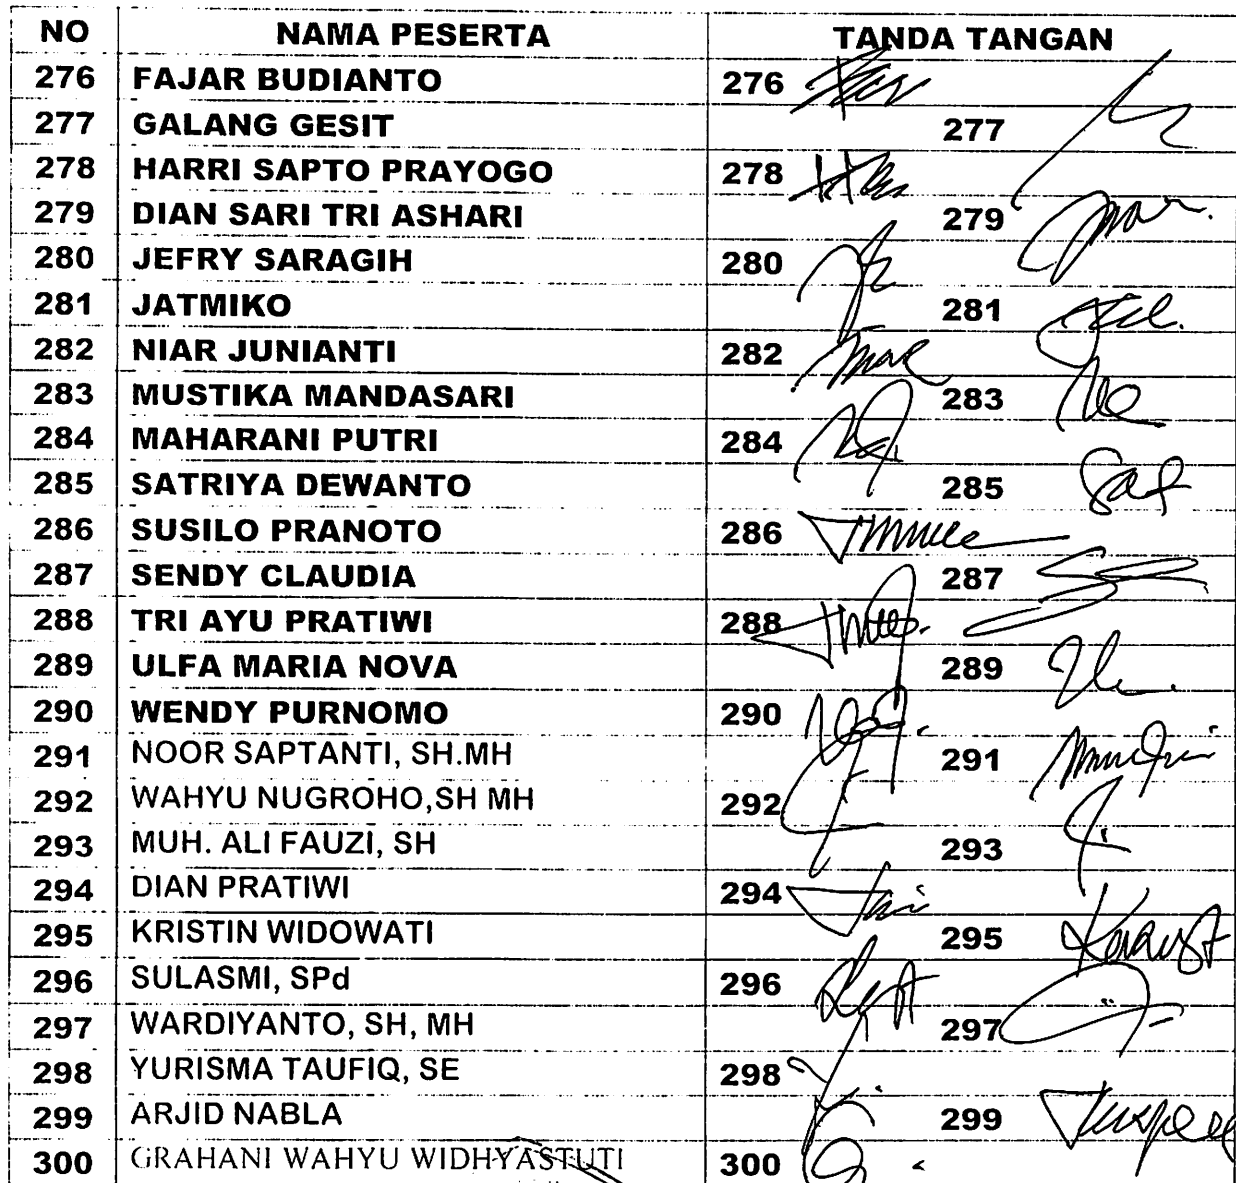 NO NAMA PESERTA TANDA TANGAN
276 FAJAR BUDIANTO 276
277 GALANG GESIT 277
278 HARRI SAPTO PRAYOGO 278
279 DIAN SARI TRI ASHARI 279
280 JEFRY SARAGIH 280
281 JATMIKO 281
282 NIAR JUNIANTI 282
283 MUSTIKA MANDASARI 283
284 MAHARANI PUTRI 284
285 SATRIYA DEWANTO 285
286 SUSILO PRANOTO 286
287 SENDY CLAUDIA 287
288 TRI AYU PRATIWI 288
289 ULFA MARIA NOVA 289
290 WENDY PURNOMO 290
291 NOOR SAPTANTI, SH.MH 291
292 WAHYU NUGROHO,SH MH 292
293 MUH. ALI FAUZI, SH 293
294 DIAN PRATIWI 294
295 KRISTIN WIDOWATI 295
296 SULASMI, SPd 296
297 WARDIYANTO, SH, MH 297
298 YURISMA TAUFIQ, SE 298
299 ARJID NABLA 299
300 GRAHANI WAHYU WIDHYASTUTI 300